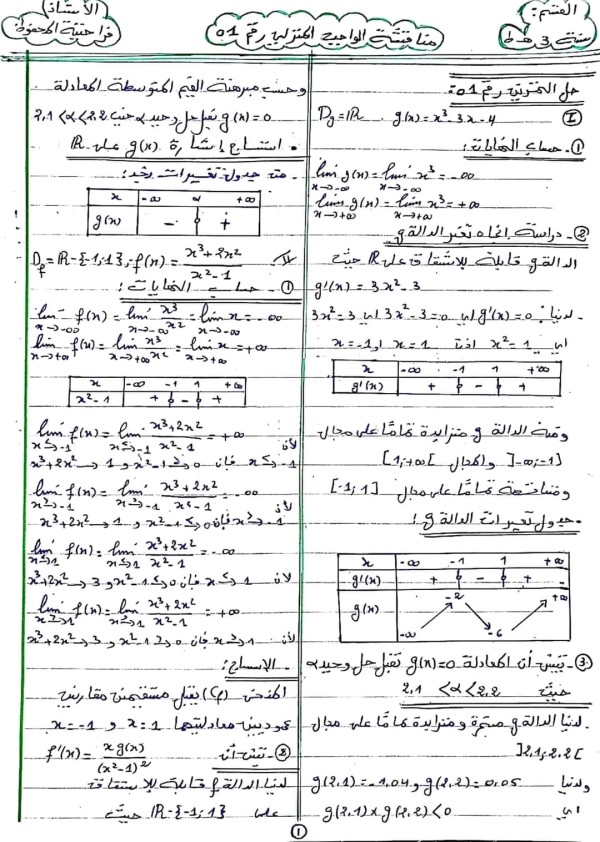 القسم:
سنة 3 هـ ط
مناقشة الواجب المنزلي رقم 01
الأستاذ
حل التمرين رقم 01:
I) D_g = ℝ g(x) = x³-3x-4
① حساب النهايات:
lim g(x) = lim x³ = -∞
x→-∞ x→-∞
lim g(x) = lim x³ = +∞
x→+∞ x→+∞
② - دراسة اتجاه تغير الدالة g
الدالة g قابلة للاشتقاق على ℝ حيث
g'(x) = 3x²-3
- لدينا: g'(x) = 0 أي 3x²-3 = 0 أي 3x² = 3
أي x² = 1 اذن x = 1 او x = -1
x -∞ -1 1 +∞
g'(x) + 0 - 0 +
ومنه الدالة g متزايدة تماما على مجال
]-∞;-1] والمجال [1;+∞[
ومتناقصة تماما على مجال [-1;1]
- جدول تغيرات الدالة g:
x -∞ -1 1 +∞
g'(x) + 0 - 0 +
g(x) -∞ -2 -6 +∞
③ - تبين أن المعادلة g(x)=0 تقبل حل وحيد α
حيث 2,1 < α < 2,2
- لدينا الدالة g مستمرة ومتزايدة تماما على مجال
]2,1;2,2[
ولدينا g(2,1) = -1,04 و g(2,2) = 0,05
أي g(2,1) x g(2,2) < 0
وحسب مبرهنة القيم المتوسطة المعادلة
g(x) = 0 تقبل حل وحيد α حيث 2,1 < α < 2,2
• استنتاج إشارة g(x) على ℝ
من جدول تغيرات نجد:
x -∞ α +∞
g(x) - 0 +
D_f = ℝ-{-1;1}; f(x) = x³+2x² / x²-1
① - حساب النهايات:
lim f(x) = lim x³/x² = lim x = -∞
x→-∞ x→-∞ x→-∞
lim f(x) = lim x³/x² = lim x = +∞
x→+∞ x→+∞ x→+∞
x -∞ -1 1 +∞
x²-1 + 0 - 0 +
lim f(x) = lim x³+2x² / x²-1 = +∞
x<→-1 x<→-1
لأن x<→-1 فإن x²-1 >→ 0 و x³+2x² → 1
lim f(x) = lim x³+2x² / x²-1 = -∞
x>→-1 x>→-1
لأن x>→-1 فإن x²-1 <→ 0 و x³+2x² → 1
lim f(x) = lim x³+2x² / x²-1 = -∞
x<→1 x<→1
لأن x<→1 فإن x²-1 <→ 0 و x³+2x² → 3
lim f(x) = lim x³+2x² / x²-1 = +∞
x>→1 x>→1
لأن x>→1 فإن x²-1 >→ 0 و x³+2x² → 3
المنحنى يقبل مستقيمين مقاربين
عموديين معادلتيهما x = 1 و x = -1
② - تبين أن f'(x) = x g(x) / (x²-1)²
لدينا الدالة f قابلة للاشتقاق
على ℝ-{-1;1} حيث
①